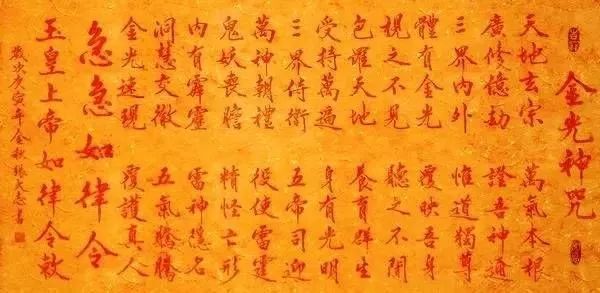 金光神咒
天地玄宗 萬氣本根
廣修億劫 證吾神通
三界內外 惟道獨尊
體有金光 覆映吾身
視之不見 聽之不聞
包羅天地 養育群生
受持萬遍 身有光明
三界侍衛 五帝司迎
萬神朝禮 役使雷霆
鬼妖喪膽 精怪亡形
內有霹靂 雷神隱名
洞慧交徹 五氣騰騰
金光速現 覆護真人
急急如律令
玉皇上帝如律令敕
歲次庚寅年金秋張書